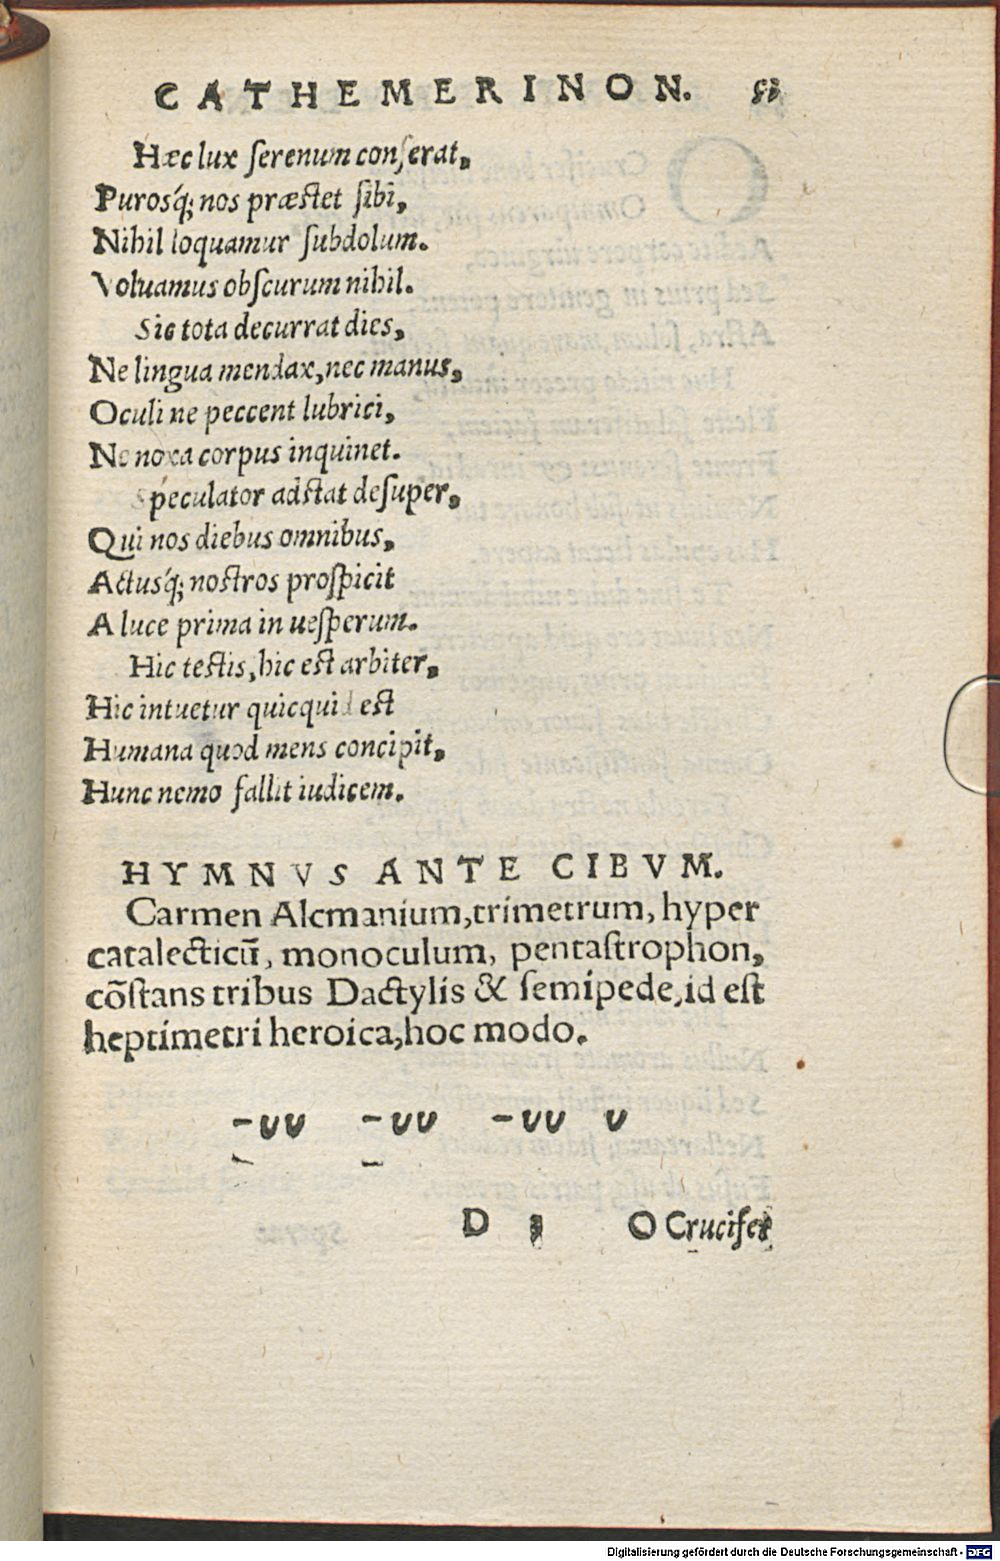 CATHEMERINON.
Hæc lux ſerenum conferat,
Purosq́; nos præſtet ſibi,
Nihil loquamur ſubdolum.
Voluamus obſcurum nihil.
Sic tota decurrat dies,
Ne lingua mendax, nec manus,
Oculi ne peccent lubrici,
Ne noxa corpus inquinet.
Speculator adſtat deſuper,
Qui nos diebus omnibus,
Actusq́; noſtros proſpicit
A luce prima in ueſperum.
Hic teſtis, hic eſt arbiter,
Hic intuetur quicquid eſt
Humana quod mens concipit,
Hunc nemo fallit iudicem.
HYMNVS ANTE CIBVM.
Carmen Alcmanium, trimetrum, hyper
catalecticū, monoculum, pentaſtrophon,
cōſtans tribus Dactylis & ſemipede, id eſt
heptimetri heroica, hoc modo.
-υυ -υυ -υυ υ
- -
D O Crucifer
Digitalisierung gefördert durch die Deutsche Forschungsgemeinschaft - DFG